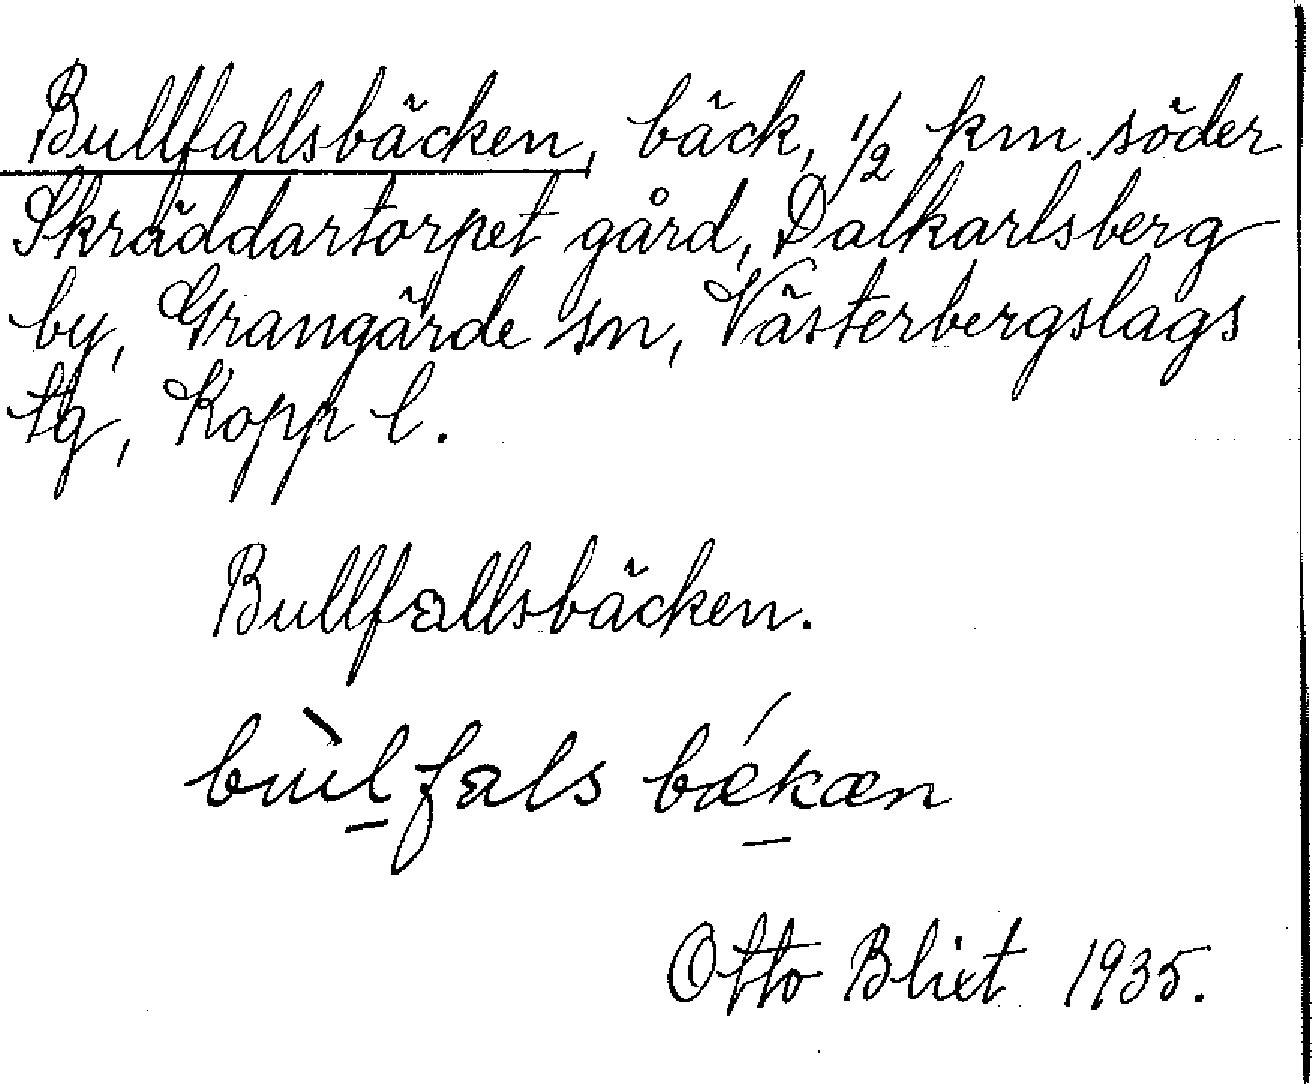 Bullfallsbäcken, bäck, 1/2 km söder
Skräddartorpet gård, Dalkarlsberg
by, Grangärde sn, Västerbergslags
tg, Kopp l.
Bullfallsbäcken.
bùl̠fals bǽk̠æn
Otto Blixt 1935.